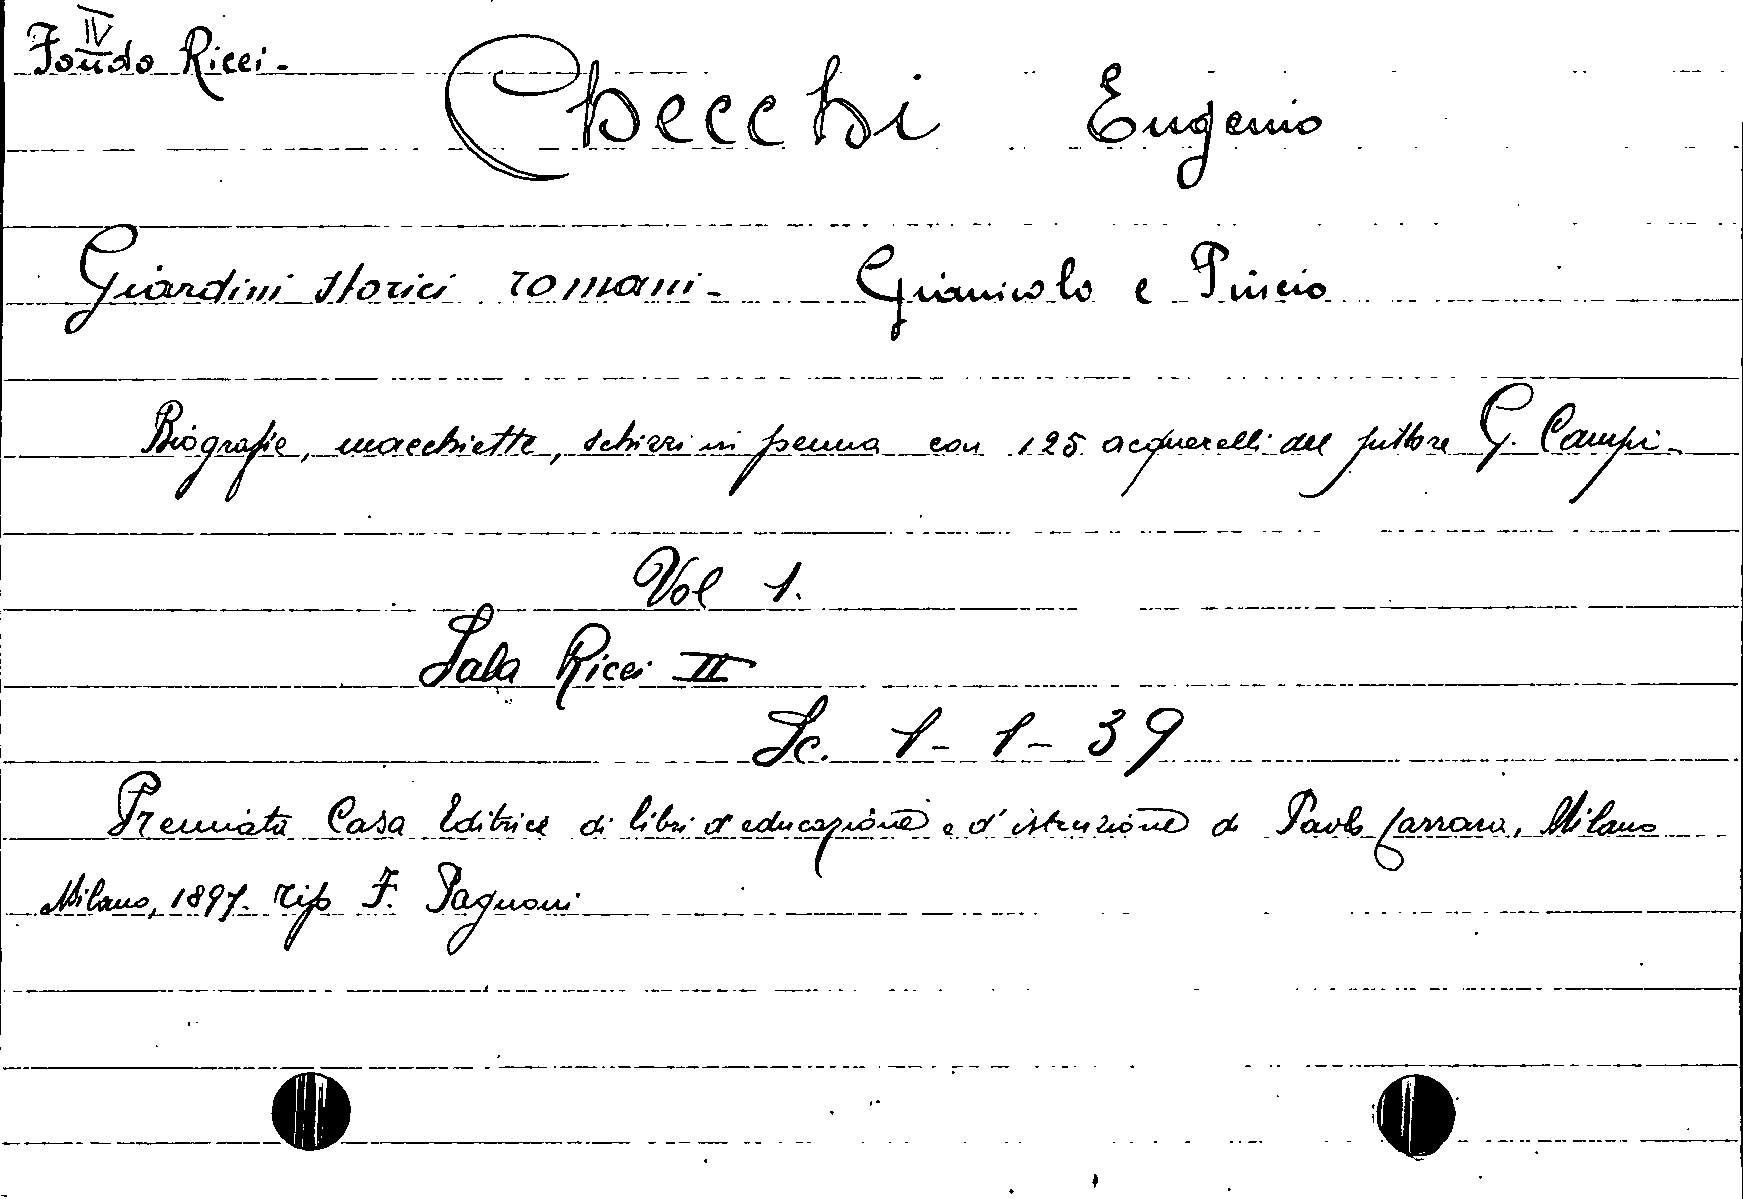 IV
Fondo Ricci -
Checchi Eugenio
Giardini storici romani - Gianicolo e Pincio
Biografie, macchiette, schizzi in penna con 125 acquerelli del pittore G. Campi -
Vol 1.
Sala Ricci II
Sc. 1 - 1 - 39
Premiata Casa Editrice di libri d'educazione e d'istruzione di Paolo Carrara, Milano
Milano, 1897. Tip F. Pagnoni